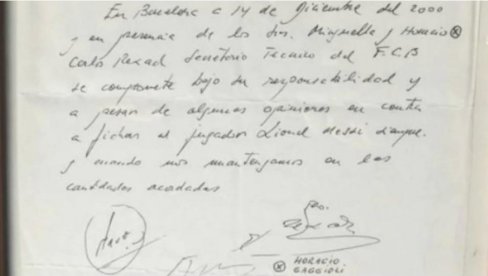 En Barcelona a 14 de diciembre del 2000
y en presencia de los Srs. Minguella y Horacio
Carlos Rexach Secretario Tecnico del F.C.B
se compromete bajo su responsabilidad y
a pesar de algunas opiniones en contra
a fichar al jugador Lionel Messi siempre
y cuando nos mantengamos en las
cantidades acordadas
HORACIO
GAGGIOLI